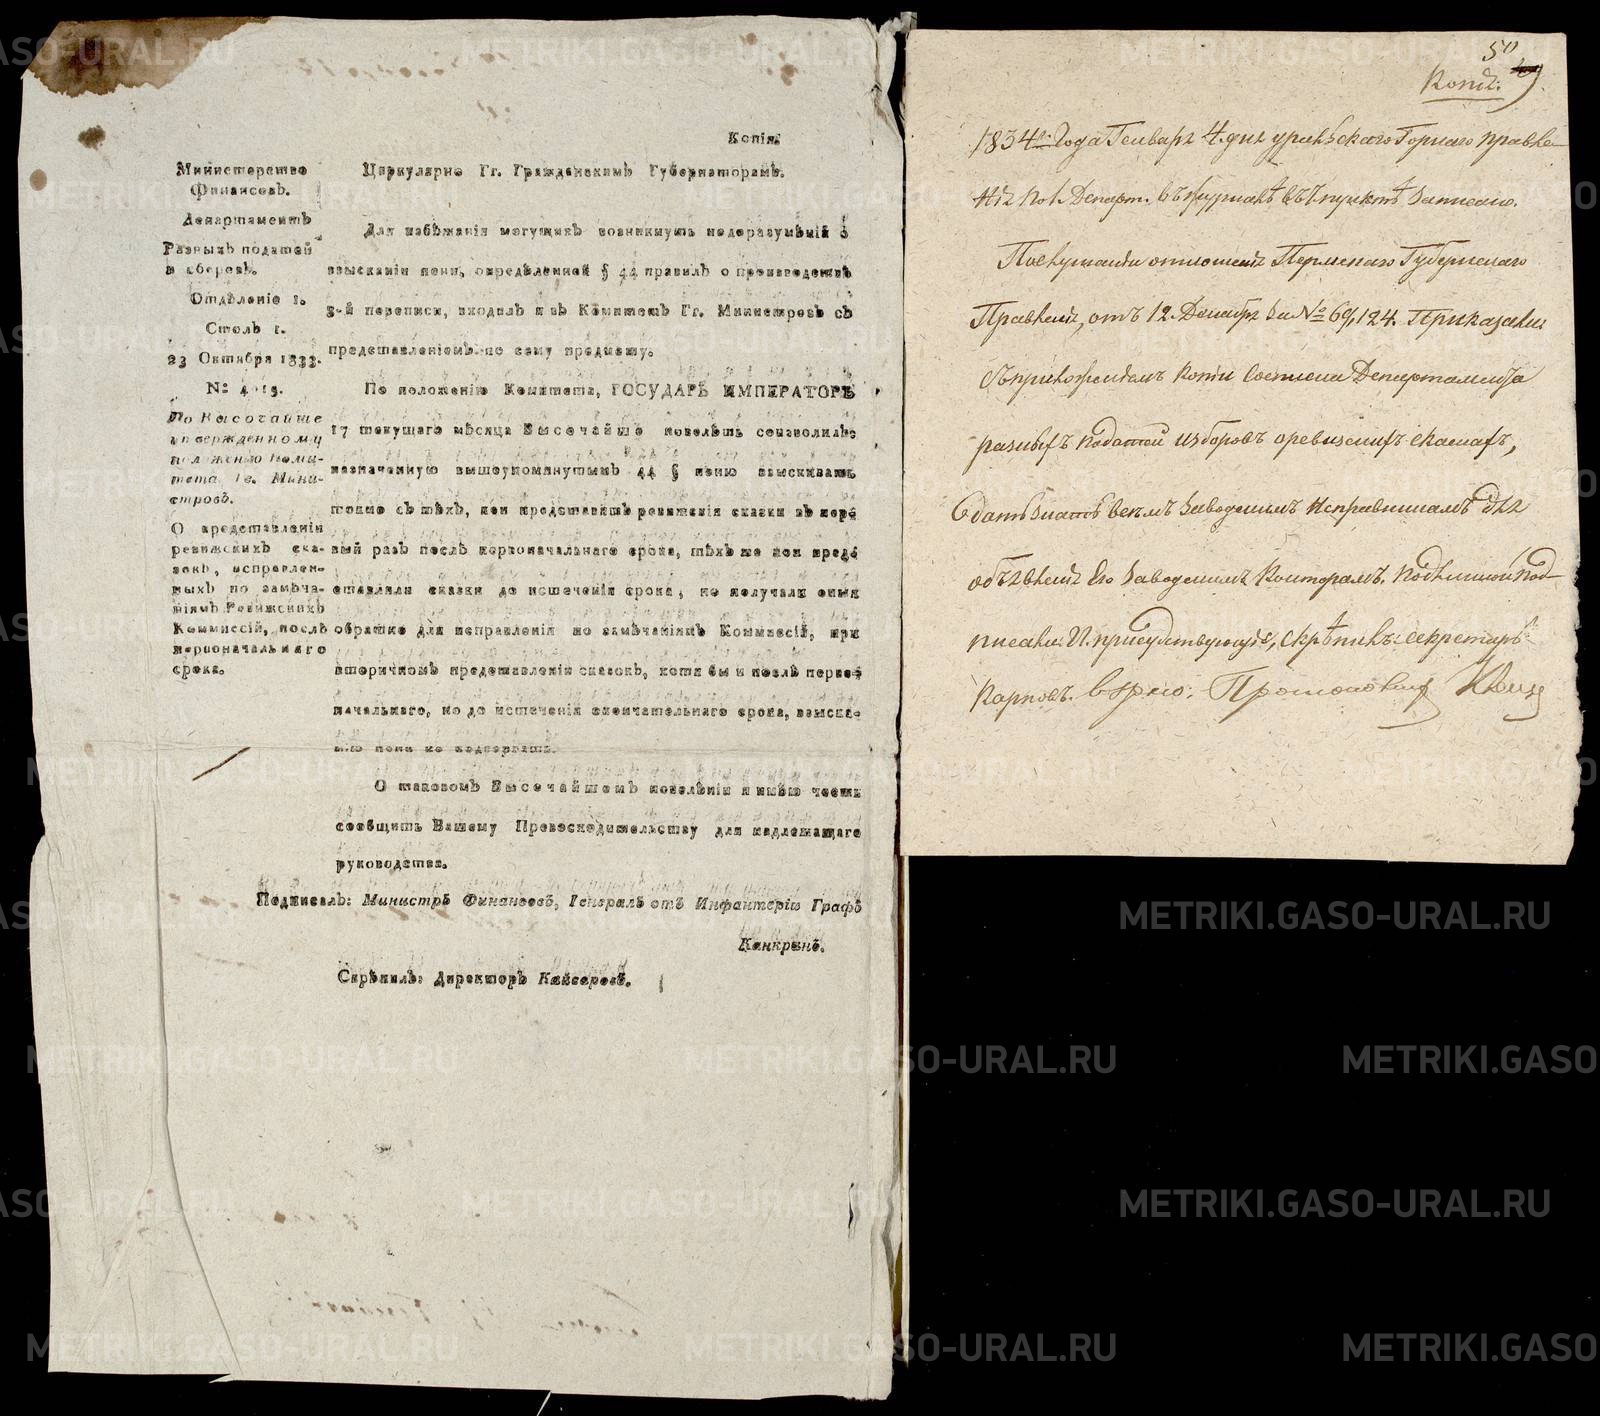 Копія.
Министерство
Финансовъ.
Департаментъ
Разныхъ податей
и сборовъ.
Отдѣленіе 1.
Столъ 1.
23 Октября 1833.
По Высочайше
утвержденному
положенію Коми-
тета Гг. Мини-
стровъ.
О представленіи
ревижскихъ ска-
зокъ, исправлен-
ныхъ по замѣча-
ніямъ Ревижскихъ
Коммиссій, послѣ
первоначальнаго
срока.
Циркулярно Гг. Гражданскимъ Губернаторамъ.
Для избѣжанія могущихъ возникнуть недоразумѣній о
взысканіи пени, опредѣленной § 44 правилъ о производствѣ
8-й переписи, входилъ я въ Комитетъ Гг. Министровъ съ
представленіемъ по сему предмету.
По положенію Комитета, ГОСУДАРЬ ИМПЕРАТОРЪ
17 текущаго мѣсяца Высочайше повелѣть соизволилъ:
назначенную вышеупомянутымъ 44 § пеню взыскивать
только съ тѣхъ, кои представятъ ревижскія сказки въ пер-
вый разъ послѣ первоначальнаго срока, тѣхъ же кои пред-
ставляли сказки до истеченія срока, но получали оныя
обратно для исправленія по замѣчаніямъ Коммиссій, при
вторичномъ представленіи сказокъ, хотя бы и послѣ перво-
начальнаго, но до истеченія окончательнаго срока, взыска-
нію пени не подвергать.
О таковомъ Высочайшемъ повелѣніи я имѣю честь
сообщить Вашему Превосходительству для надлежащаго
руководства.
Подписалъ: Министръ Финансовъ, Генералъ отъ Инфантеріи Графъ
Канкринъ.
Скрѣпилъ: Директоръ Кайсаровъ.
50
Копія.
1834го Года Генваря 4 дня уральскаго Горнаго правле-
нія по 1. Департ. въ журналѣ въ пунктѣ записано.
Послушали отношенія Пермскаго Губернскаго
Правленія, отъ 12 Декабря за № 69,124. Приказали:
съ приложеніемъ копіи состоща Департамента
разныхъ податей и сборовъ о ревизскихъ сказкахъ,
дать знать всѣмъ Заводскимъ Исправникамъ для
объявленія Заводскимъ Конторамъ. Подлинной под-
писали: Г. присудствующіе, скрѣпилъ: секретарь
Карповъ. вѣрно:
METRIKI.GASO-URAL.RU